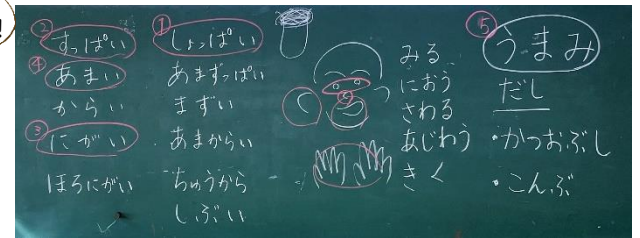 ② すっぱい
④ あまい
からい
③ にがい
ほろにがい
① しょっぱい
あまずっぱい
まずい
あまからい
ちゅうから
しぶい
みる
におう
さわる
あじわう
きく
⑤ うまみ
だし
・かつおぶし
・こんぶ